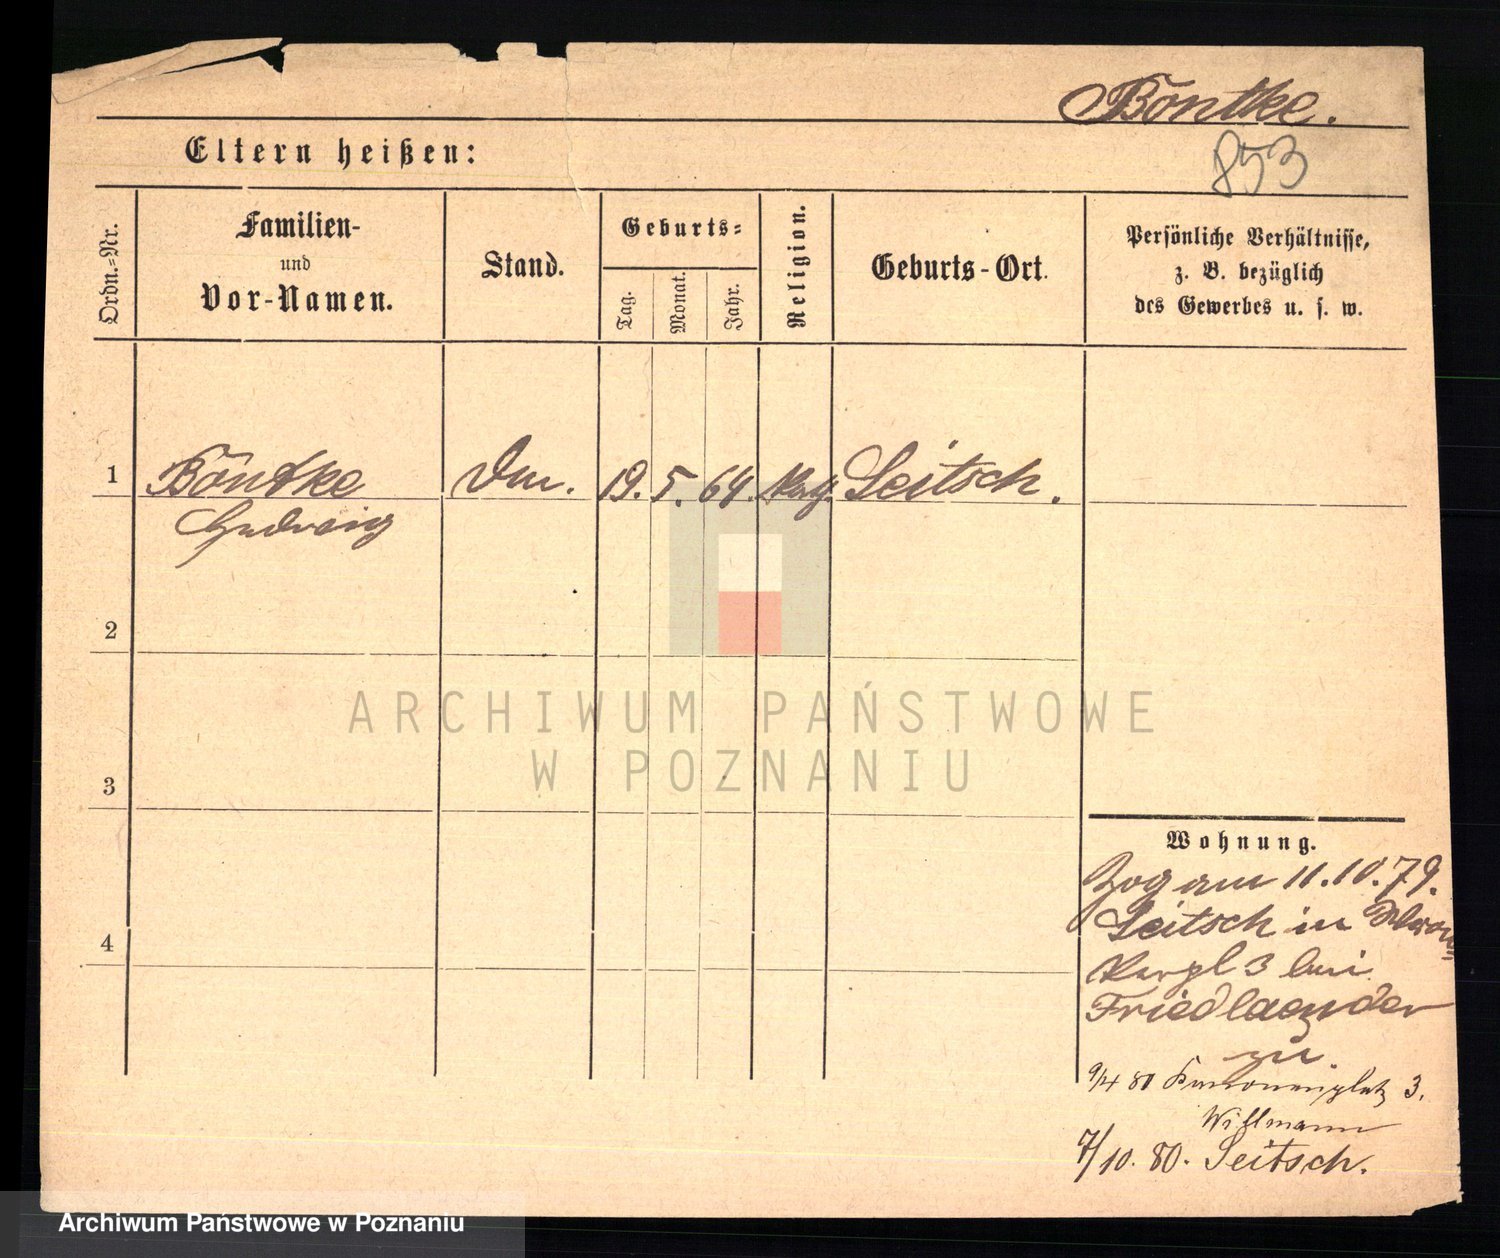 Böntke.
853
Eltern heißen:
Ordn.-Nr.
Familien-
und
Vor-Namen.
Stand.
Geburts-
Tag.
Monat.
Jahr.
Religion.
Geburts-Ort.
Persönliche Verhältnisse,
z. B. bezüglich
des Gewerbes u. s. w.
1 Böntke 19. 5. 64. Seitsch.
Ludwig
2
ARCHIWUM PAŃSTWOWE
W POZNANIU
3
Wohnung.
Zog am 11.10.79.
Seitsch in
4
3 bei
Friedlaender
zu.
80 Kanonenplatz 3.
Willmann
7/10. 80. Seitsch.
Archiwum Państwowe w Poznaniu